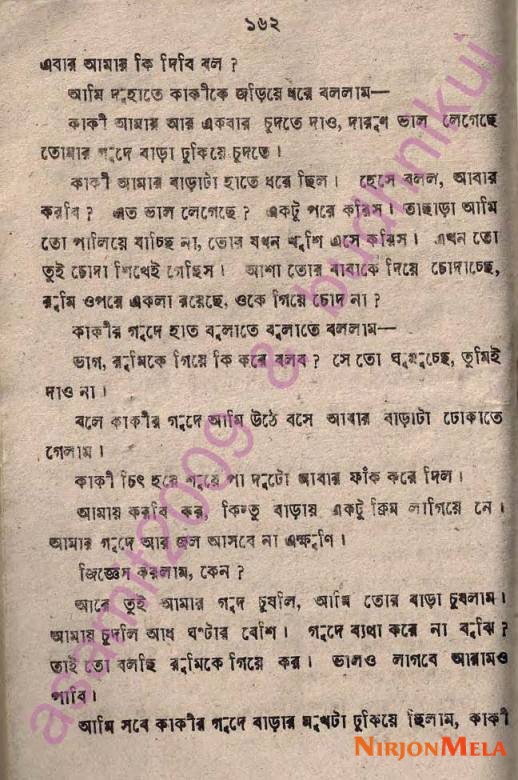 ১৬২
এবার আমায় কি দিবি বল ?
আমি দুহাতে কাকীকে জড়িয়ে ধরে বললাম—
কাকী আমায় আর একবার চুদতে দাও, দারুণ ভাল লেগেছে
তোমার গুদে বাড়া ঢুকিয়ে চুদতে।
কাকী আমার বাড়াটা হাতে ধরে ছিল। হেসে বলল, আবার
করবি ? এত ভাল লেগেছে ? একটু পরে করিস। তাছাড়া আমি
তো পালিয়ে যাচ্ছি না, তোর যখন খুশি এসে করিস। এখন তো
তুই চোদা শিখেই গেছিস। আশা তোর বাবাকে দিয়ে চোদাচ্ছে,
রুমি ওপরে একলা রয়েছে, ওকে গিয়ে চোদ না ?
কাকীর গুদে হাত বুলাতে বুলাতে বললাম—
ভাগ, রুমিকে গিয়ে কি করে বলব ? সে তো ঘুমুচ্ছে, তুমিই
দাও না।
বলে কাকীর গুদে আমি উঠে বসে আবার বাড়াটা ঢোকাতে
গেলাম।
কাকী চিৎ হয়ে শুয়ে পা দুটো আবার ফাঁক করে দিল।
আমায় করবি কর, কিন্তু বাড়ায় একটু ক্রিম লাগিয়ে নে।
আমার গুদে আর জল আসবে না এক্ষুণি।
জিজ্ঞেস করলাম, কেন ?
আরে তুই আমার গুদ চুষলি, আমি তোর বাড়া চুষলাম।
আমায় চুদলি আধ ঘণ্টার বেশি। গুদে ব্যথা করে না বুঝি ?
তাই তো বলছি রুমিকে গিয়ে কর। ভালও লাগবে আরামও
পাবি।
আমি সবে কাকীর গুদে বাড়ার মুখটা ঢুকিয়ে ছিলাম, কাকী
asamit2009 &
NIRJONMELA